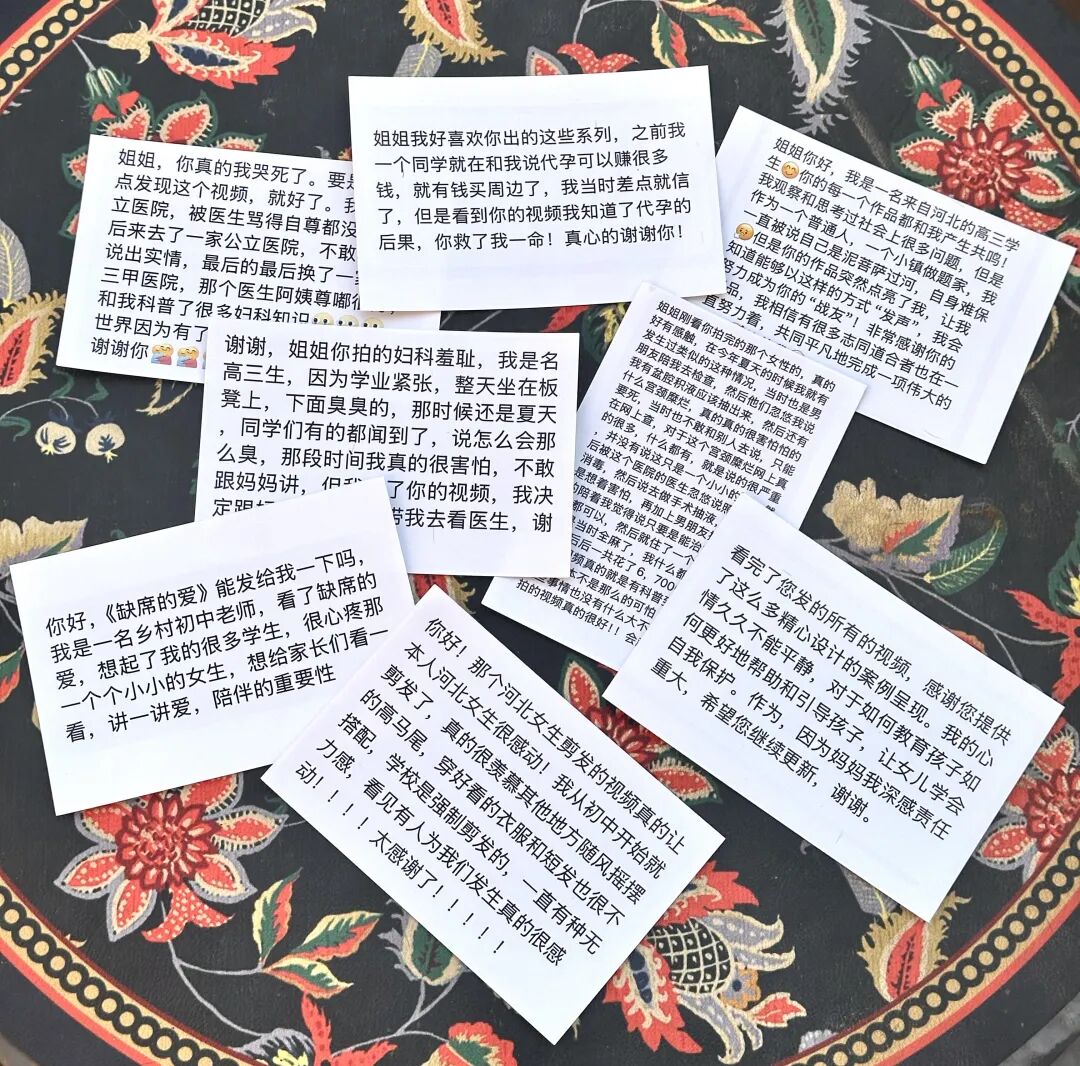 姐姐，你真的我哭死了。要是
点发现这个视频，就好了。我
立医院，被医生骂得自尊都没
后来去了一家公立医院，不敢
说出实情，最后的最后换了一家
三甲医院，那个医生阿姨尊嘟很
和我科普了很多妇科知识
世界因为有了
谢谢你
姐姐我好喜欢你出的这些系列，之前我
一个同学就在和我说代孕可以赚很多
钱，就有钱买周边了，我当时差点就信
了，但是看到你的视频我知道了代孕的
后果，你救了我一命！真心的谢谢你！
姐姐你好，我是一名来自河北的高三学
生😊你的每一个作品都和我产生共鸣！
我观察和思考过社会上很多问题，但是
作为一个普通人，一个小镇做题家，我
一直被说自己是泥菩萨过河，自身难保
但是你的作品突然点亮了我，让我
知道能够以这样的方式“发声”，我会
努力成为你的“战友”！非常感谢你的
品，我相信有很多志同道合者也在一
直努力着，共同平凡地完成一项伟大的
谢谢，姐姐你拍的妇科羞耻，我是名
高三生，因为学业紧张，整天坐在板
凳上，下面臭臭的，那时候还是夏天
，同学们有的都闻到了，说怎么会那
么臭，那段时间我真的很害怕，不敢
跟妈妈讲，但我 了你的视频，我决
定跟
带我去看医生，谢
姐姐刚看你拍完的那个女性的，真的
好有感触，在今年夏天的时候我就有
发生过类似的这种情况，当时也是男
朋友陪我去检查，然后他们忽悠我说
我有盆腔积液应该抽出来，然后还有
什么宫颈糜烂，真的真的很害怕怕的
要死，当时也不敢和别人去说，只能
在网上查，对于这个宫颈糜烂网上真
的很多，什么都有，就是说的很严重
，并没有说这只是一个小小的
后被这个医院的医生忽悠说照
消毒，然后说去做手术抽液
是想着害怕，再加上男朋友
的陪着我觉得说只要是能治
都可以，然后就住了一个
是当时全麻了，我什么都
后后一共花了6，700
视频真的就是有科普
本不是那么的可怕
事情也没有什么大不
拍的视频真的很好！！会
你好，《缺席的爱》能发给我一下吗，
我是一名乡村初中老师，看了缺席的
爱，想起了我的很多学生，很心疼那
一个个小小的女生，想给家长们看一
看，讲一讲爱，陪伴的重要性
你好！那个河北女生剪发的视频真的让
本人河北女生很感动！我从初中开始就
剪发了，真的很羡慕其他地方随风摇摆
的高马尾，穿好看的衣服和短发也很不
搭配，学校是强制剪发的，一直有种无
力感，看见有人为我们发生真的很感
动！！！！太感谢了！！！！！
看完了您发的所有的视频，感谢您提供
了这么多精心设计的案例呈现。我的心
情久久不能平静，对于如何教育孩子如
何更好地帮助和引导孩子，让女儿学会
自我保护。作为，因为妈妈我深感责任
重大，希望您继续更新，谢谢。